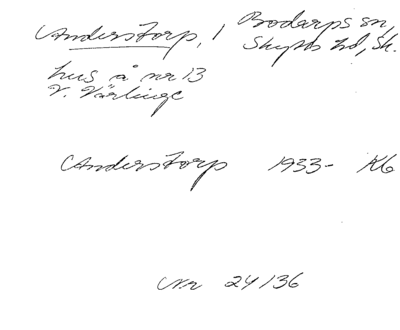 Anderstorp, 1 Bodarps sn,
Skytts hd, Sk.
hus å nr 13
V. Värlinge
Anderstorp 1933- K6
Nr 24/36